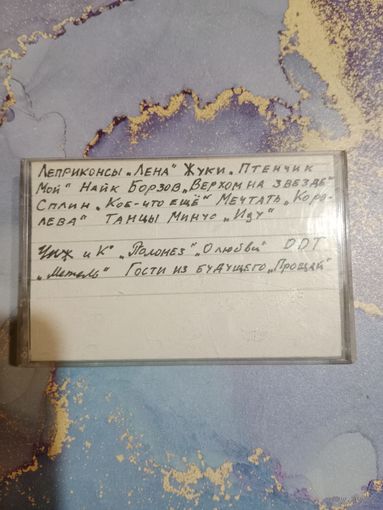 Леприконсы „Лена" Жуки „Птенчик
мой" Найк Борзов „Верхом на звезде"
Сплин „Кое-что ещё" Мечтать „Коро-
лева" Танцы Минус „Иду"
Чиж и К° „Полонез" „О любви" DDT
„Метель" Гости из будущего „Прощай"